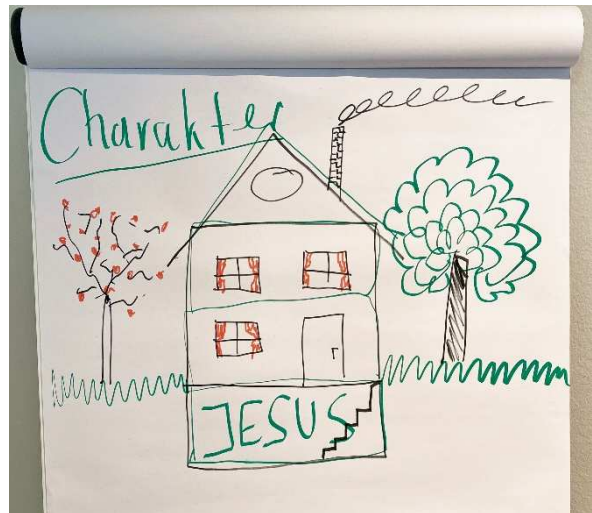 Charakter
JESUS